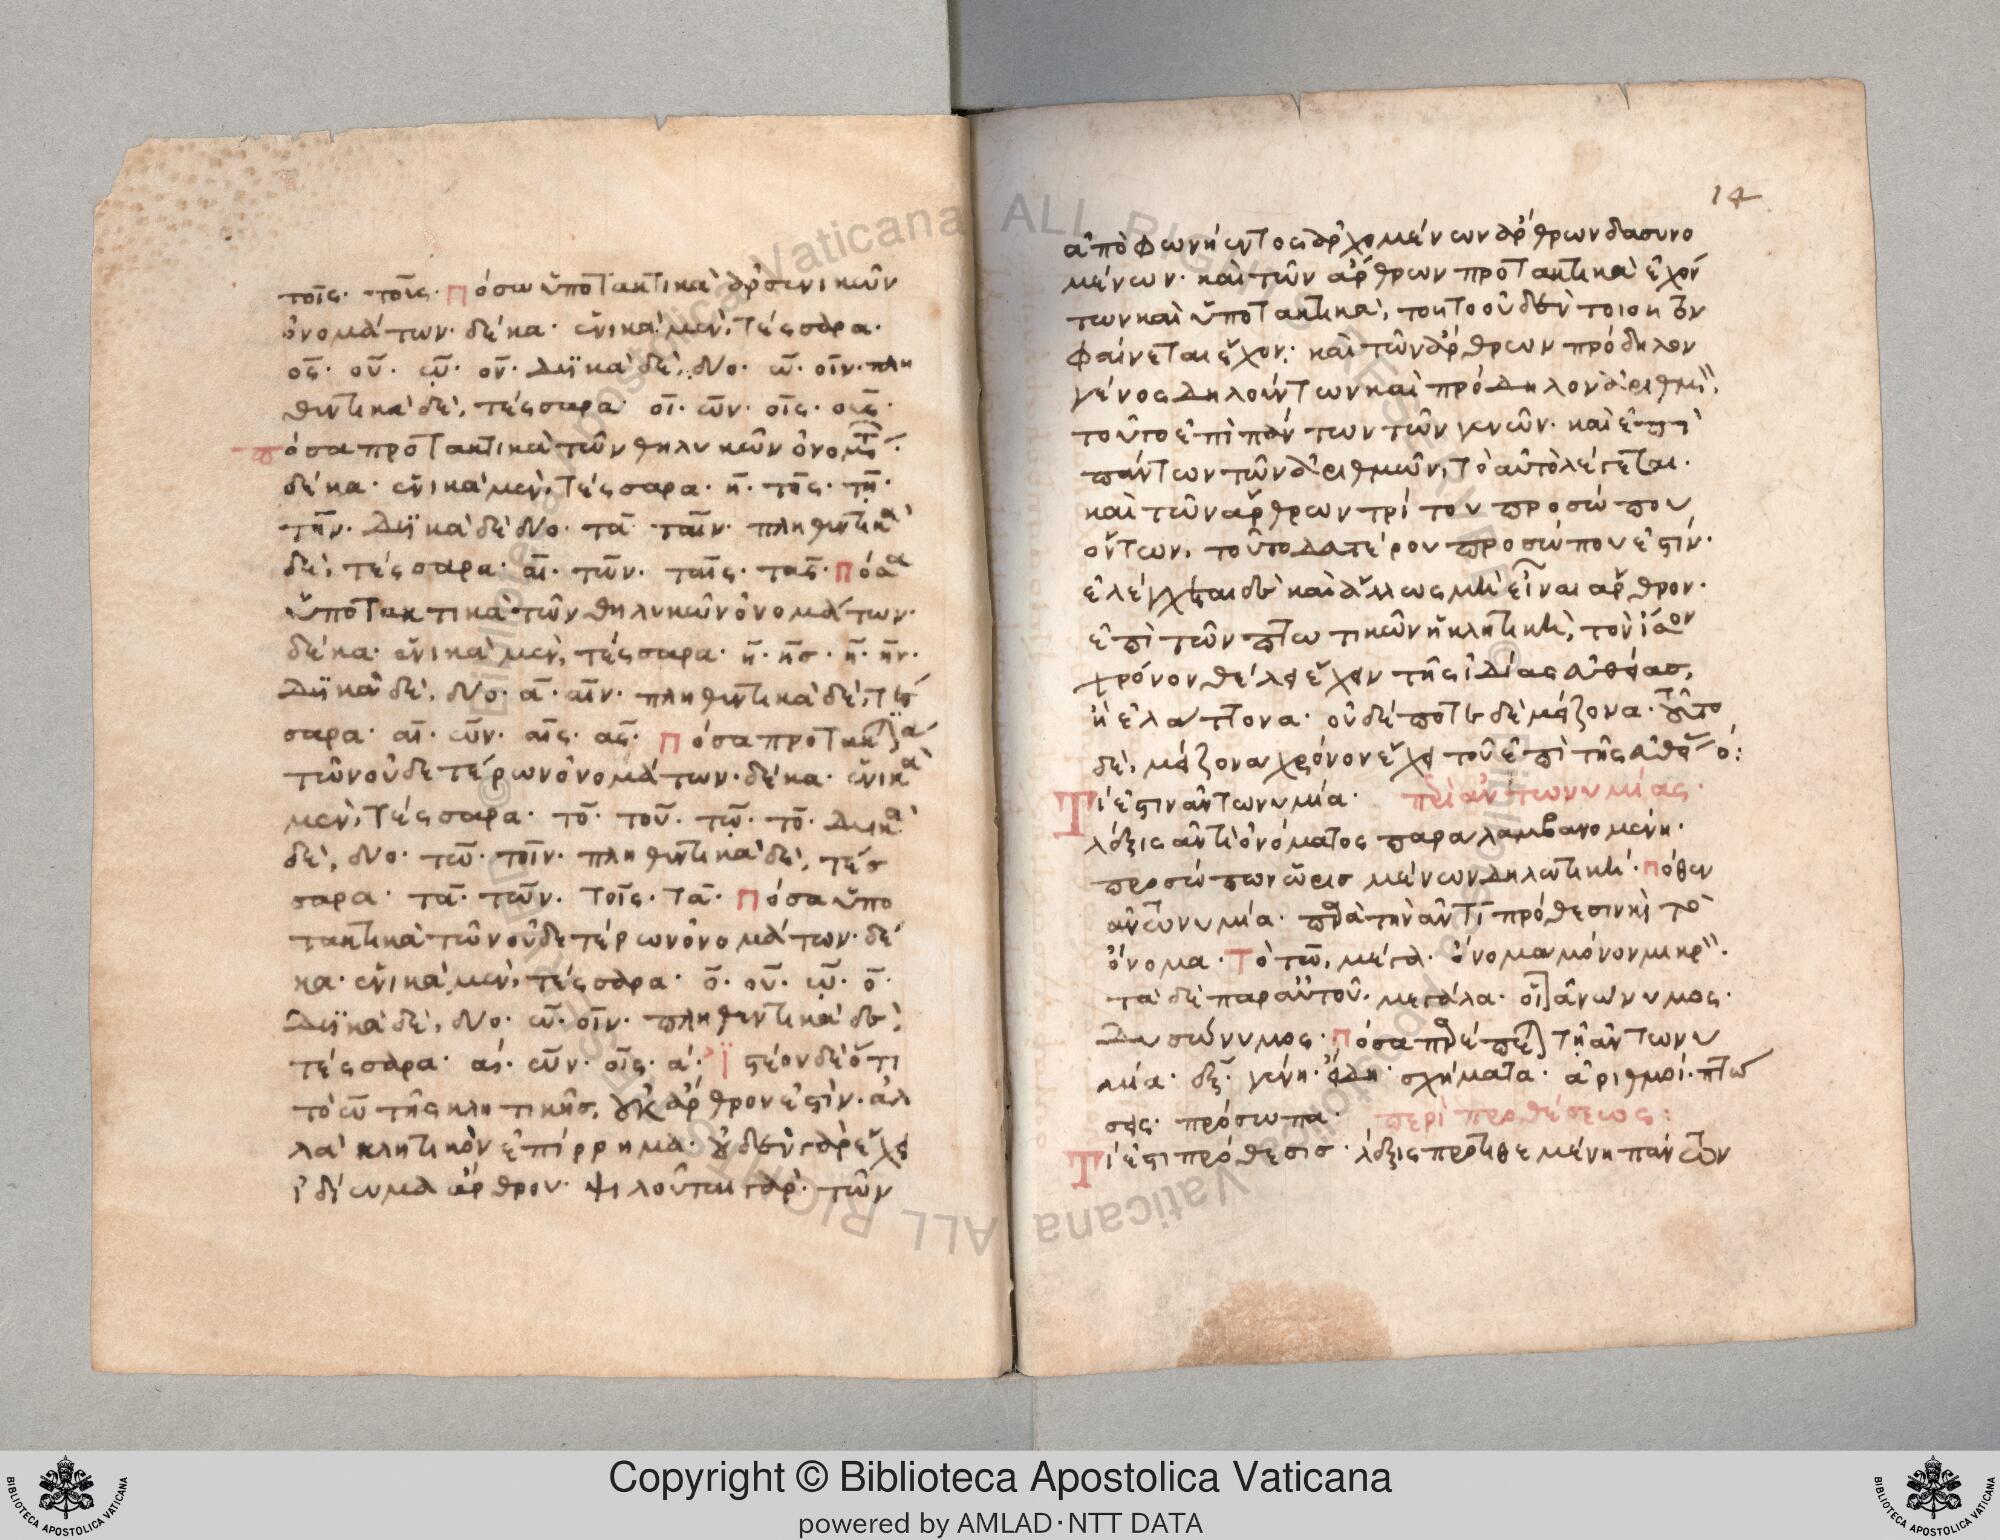 τοῖς· τοῖς· Πόσα ὑποτακτικὰ ἀρσενικῶν
ὀνομάτων· δέκα· ἑνικὰ μὲν, τέσσαρα·
ὃς· οὗ· ᾧ· ὃν· Δυϊκὰ δὲ, δύο· ὣ· οἷν· πλη
θυντικὰ δὲ, τέσσαρα· οἳ· ὧν· οἷς· οὓς·
πόσα προτακτικὰ τῶν θηλυκῶν ὀνομάτ·
δέκα· ἑνικὰ μὲν, τέσσαρα· ἡ· τῆς· τῇ·
τὴν· Δυϊκὰ δὲ δύο· τὰ ταῖν· πληθυντικὰ
δὲ, τέσσαρα· αἱ· τῶν· ταῖς· τὰς· Πόσα
ὑποτακτικὰ τῶν θηλυκῶν ὀνομάτων·
δέκα· ἑνικὰ μὲν, τέσσαρα· ἣ· ἧς· ᾗ· ἣν·
Δυϊκὰ δὲ, δύο· ἃ· αἷν· πληθυντικὰ δὲ, τέσ
σαρα· αἳ· ὧν· αἷς· ἃς· Πόσα προτακτικὰ
τῶν οὐδετέρων ὀνομάτων· δέκα· ἑνικὰ
μὲν, τέσσαρα· τὸ· τοῦ· τῷ· τὸ· Δυικὰ
δὲ, δύο· τὼ· τοῖν· πληθυντικὰ δὲ, τέσ
σαρα· τὰ· τῶν· τοῖς· τὰ· Πόσα ὑπο
τακτικὰ τῶν οὐδετέρων ὀνομάτων· δέ
κα· ἑνικὰ μὲν, τέσσαρα· ὃ· οὗ· ᾧ· ὃ·
Δυϊκὰ δὲ, δύο· ὣ· οἷν· πληθυντικὰ δὲ,
τέσσαρα· ἅ· ὧν· οἷς· ἅ· Ἰστέον δὲ ὅτι
τὸ ὦ τῆς κλητικῆς, οὐκ ἄρθρον ἐστὶν· ἀλ
λὰ κλητικὸν ἐπίρρημα· οὐδὲν γὰρ ἔχει
ἰδίωμα ἄρθρον· ψιλοῦται γὰρ· τῶν
14
ἀπὸ φωνήεντος ἀρχομένων ἄρθρων δασυνο
μένων· καὶ τῶν ἄρθρων προτακτικὰ ἐχόν
των καὶ ὑποτακτικὰ, τοῦτο οὐδὲν τοιοῦτον
φαίνεται ἔχον· καὶ τῶν ἄρθρων πρόδηλον
γένος δηλούντων καὶ πρόδηλον ἀριθμὸν,
τοῦτο ἐπὶ πάντων τῶν γενῶν· καὶ ἐπὶ
πάντων τῶν ἀριθμῶν, τὸ αὐτὸ λέγεται·
καὶ τῶν ἄρθρων τρίτου προσώπου
ὄντων, τοῦτο δευτέρου προσώπου ἐστίν·
ἐλέγχεται δὲ καὶ ἄλλως μὴ εἶναι ἄρθρον·
ἐπὶ τῶν πτωτικῶν ἡ κλητικὴ, τὸν ἴσον
χρόνον θέλει ἔχειν τῆς ἰδίας εὐθείας,
ἢ ἐλάττονα· οὐδέποτε δὲ μείζονα· τοῦτο
δὲ, μείζονα χρόνον ἔχει τοῦ ἐπὶ τῆς εὐθεί ὁ:
Τί ἐστιν ἀντωνυμία· περὶ ἀντωνυμίας·
λέξις ἀντὶ ὀνόματος παραλαμβανομένη·
προσώπων ὡρισμένων δηλωτική· Πόθεν
ἀντωνυμία· παρὰ τὴν ἀντὶ πρόθεσιν καὶ τὸ
ὄνομα· Τὸ τω, μέγα· ὄνομα μόνον μικρὸν·
τὰ δὲ παρ' αὐτοῦ, μεγάλα· οἷον ἀνώνυμος·
Δυσώνυμος· Πόσα παρέπεται τῇ ἀντωνυ
μία· ἕξ· γένη· εἴδη· σχήματα· ἀριθμοί· πτώ
σεις· πρόσωπα· περὶ προθέσεως:
Τί ἐστι πρόθεσις· λέξις προτιθεμένη πάντων
Copyright © Biblioteca Apostolica Vaticana
powered by AMLAD·NTT DATA